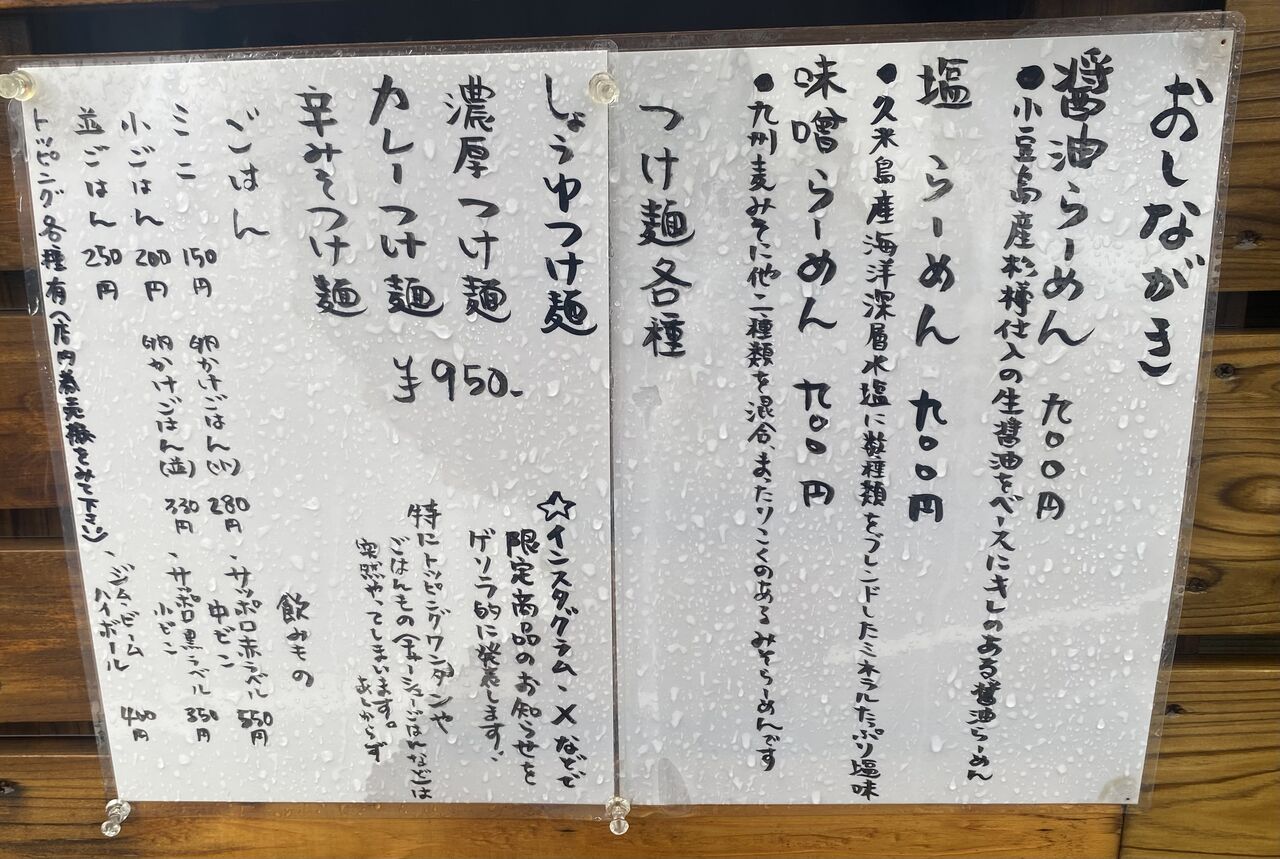 おしながき
醤油らーめん 九〇〇円
●小豆島産杉樽仕入の生醤油をベースにキレのある醤油らーめん
塩らーめん 九〇〇円
●久米島産海洋深層水塩に数種類をブレンドしたミネラルたっぷり塩味
味噌らーめん 九〇〇円
●九州麦みそに他二種類を混合、まったりこくのあるみそらーめんです
つけ麺各種
しょうゆつけ麺
濃厚つけ麺
カレーつけ麺
辛みそつけ麺
¥950-
☆インスタグラム・Xなどで
限定商品のお知らせを
ゲリラ的に発表します!
特にトッピングワンタンや
ごはんもの(チャーシューごはんなど)は
突然やってしまいます。
あしからず
ごはん
ミニ 150円
小ごはん 200円
並ごはん 250円
卵かけごはん(小) 280円
卵かけごはん(並) 330円
トッピング各種有(店内券売機をみて下さい)
飲みもの
・サッポロ赤ラベル
中ビン 550円
・サッポロ黒ラベル
小ビン 350円
・ジムビーム
ハイボール 400円